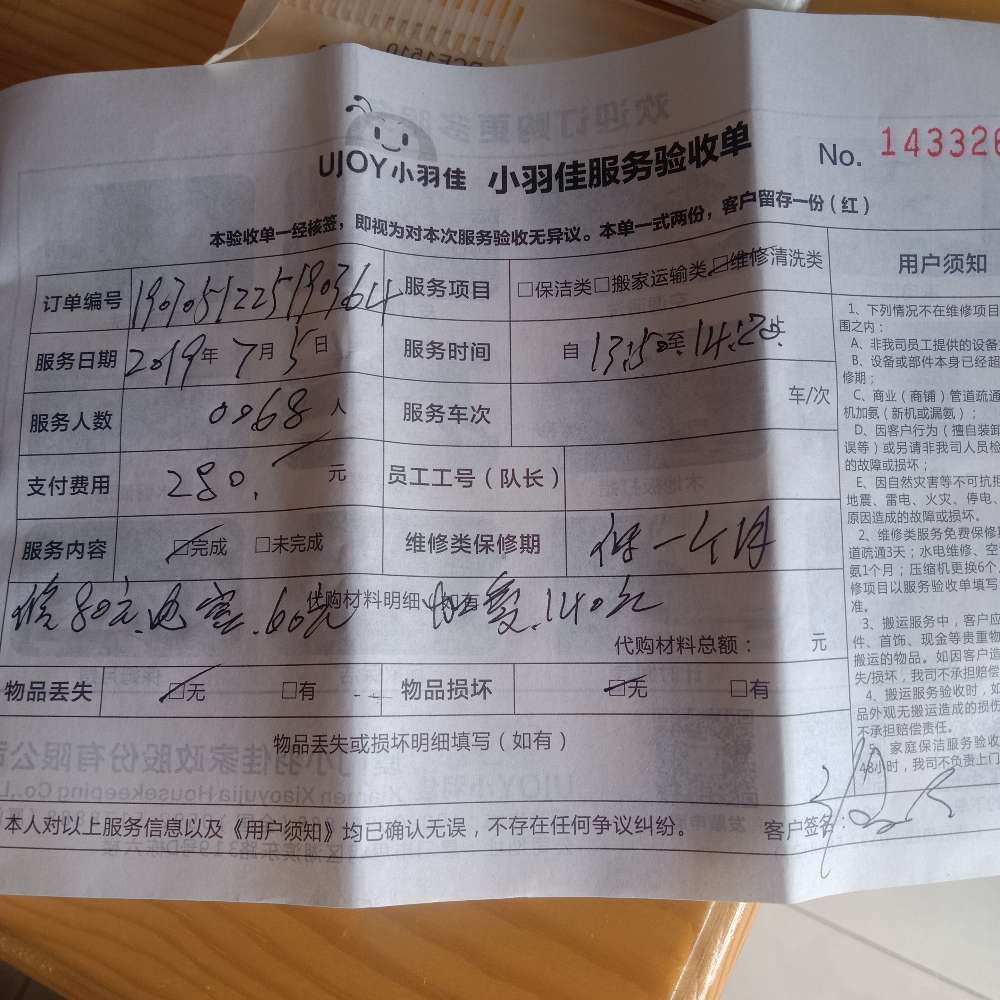 UJOY小羽佳 小羽佳服务验收单
No. 143326
本验收单一经核签，即视为对本次服务验收无异议。本单一式两份，客户留存一份（红）
订单编号 1907051225190364 服务项目 □保洁类□搬家运输类☑维修清洗类
服务日期 2019年7月5日 服务时间 自13:50至14:20止
服务人数 0068人 服务车次 车/次
支付费用 280. 元 员工工号（队长）
服务内容 ☑完成 □未完成 维修类保修期 保一个月
代购材料明细（如有）
修80元、电容.60元 加雯.140元
代购材料总额： 元
物品丢失 ☑无 □有 物品损坏 ☑无 □有
物品丢失或损坏明细填写（如有）
本人对以上服务信息以及《用户须知》均已确认无误，不存在任何争议纠纷。 客户签名：
用户须知
1、下列情况不在维修项目
围之内：
A、非我司员工提供的设备
B、设备或部件本身已经超
修期；
C、商业（商铺）管道疏通
机加氨（新机或漏氨）；
D、因客户行为（擅自装卸
误等）或另请非我司人员检
的故障或损坏；
E、因自然灾害等不可抗拒
地震、雷电、火灾、停电、
原因造成的故障或损坏。
2、维修类服务免费保修
道疏通3天；水电维修、空
氨1个月；压缩机更换6个
修项目以服务验收单填写
准。
3、搬运服务中，客户应
件、首饰、现金等贵重物
搬运的物品。如因客户造
失/损坏，我司不承担赔偿
4、搬运服务验收时，如
品外观无搬运造成的损伤
不承担赔偿责任。
家庭保洁服务验收
48小时，我司不负责上门